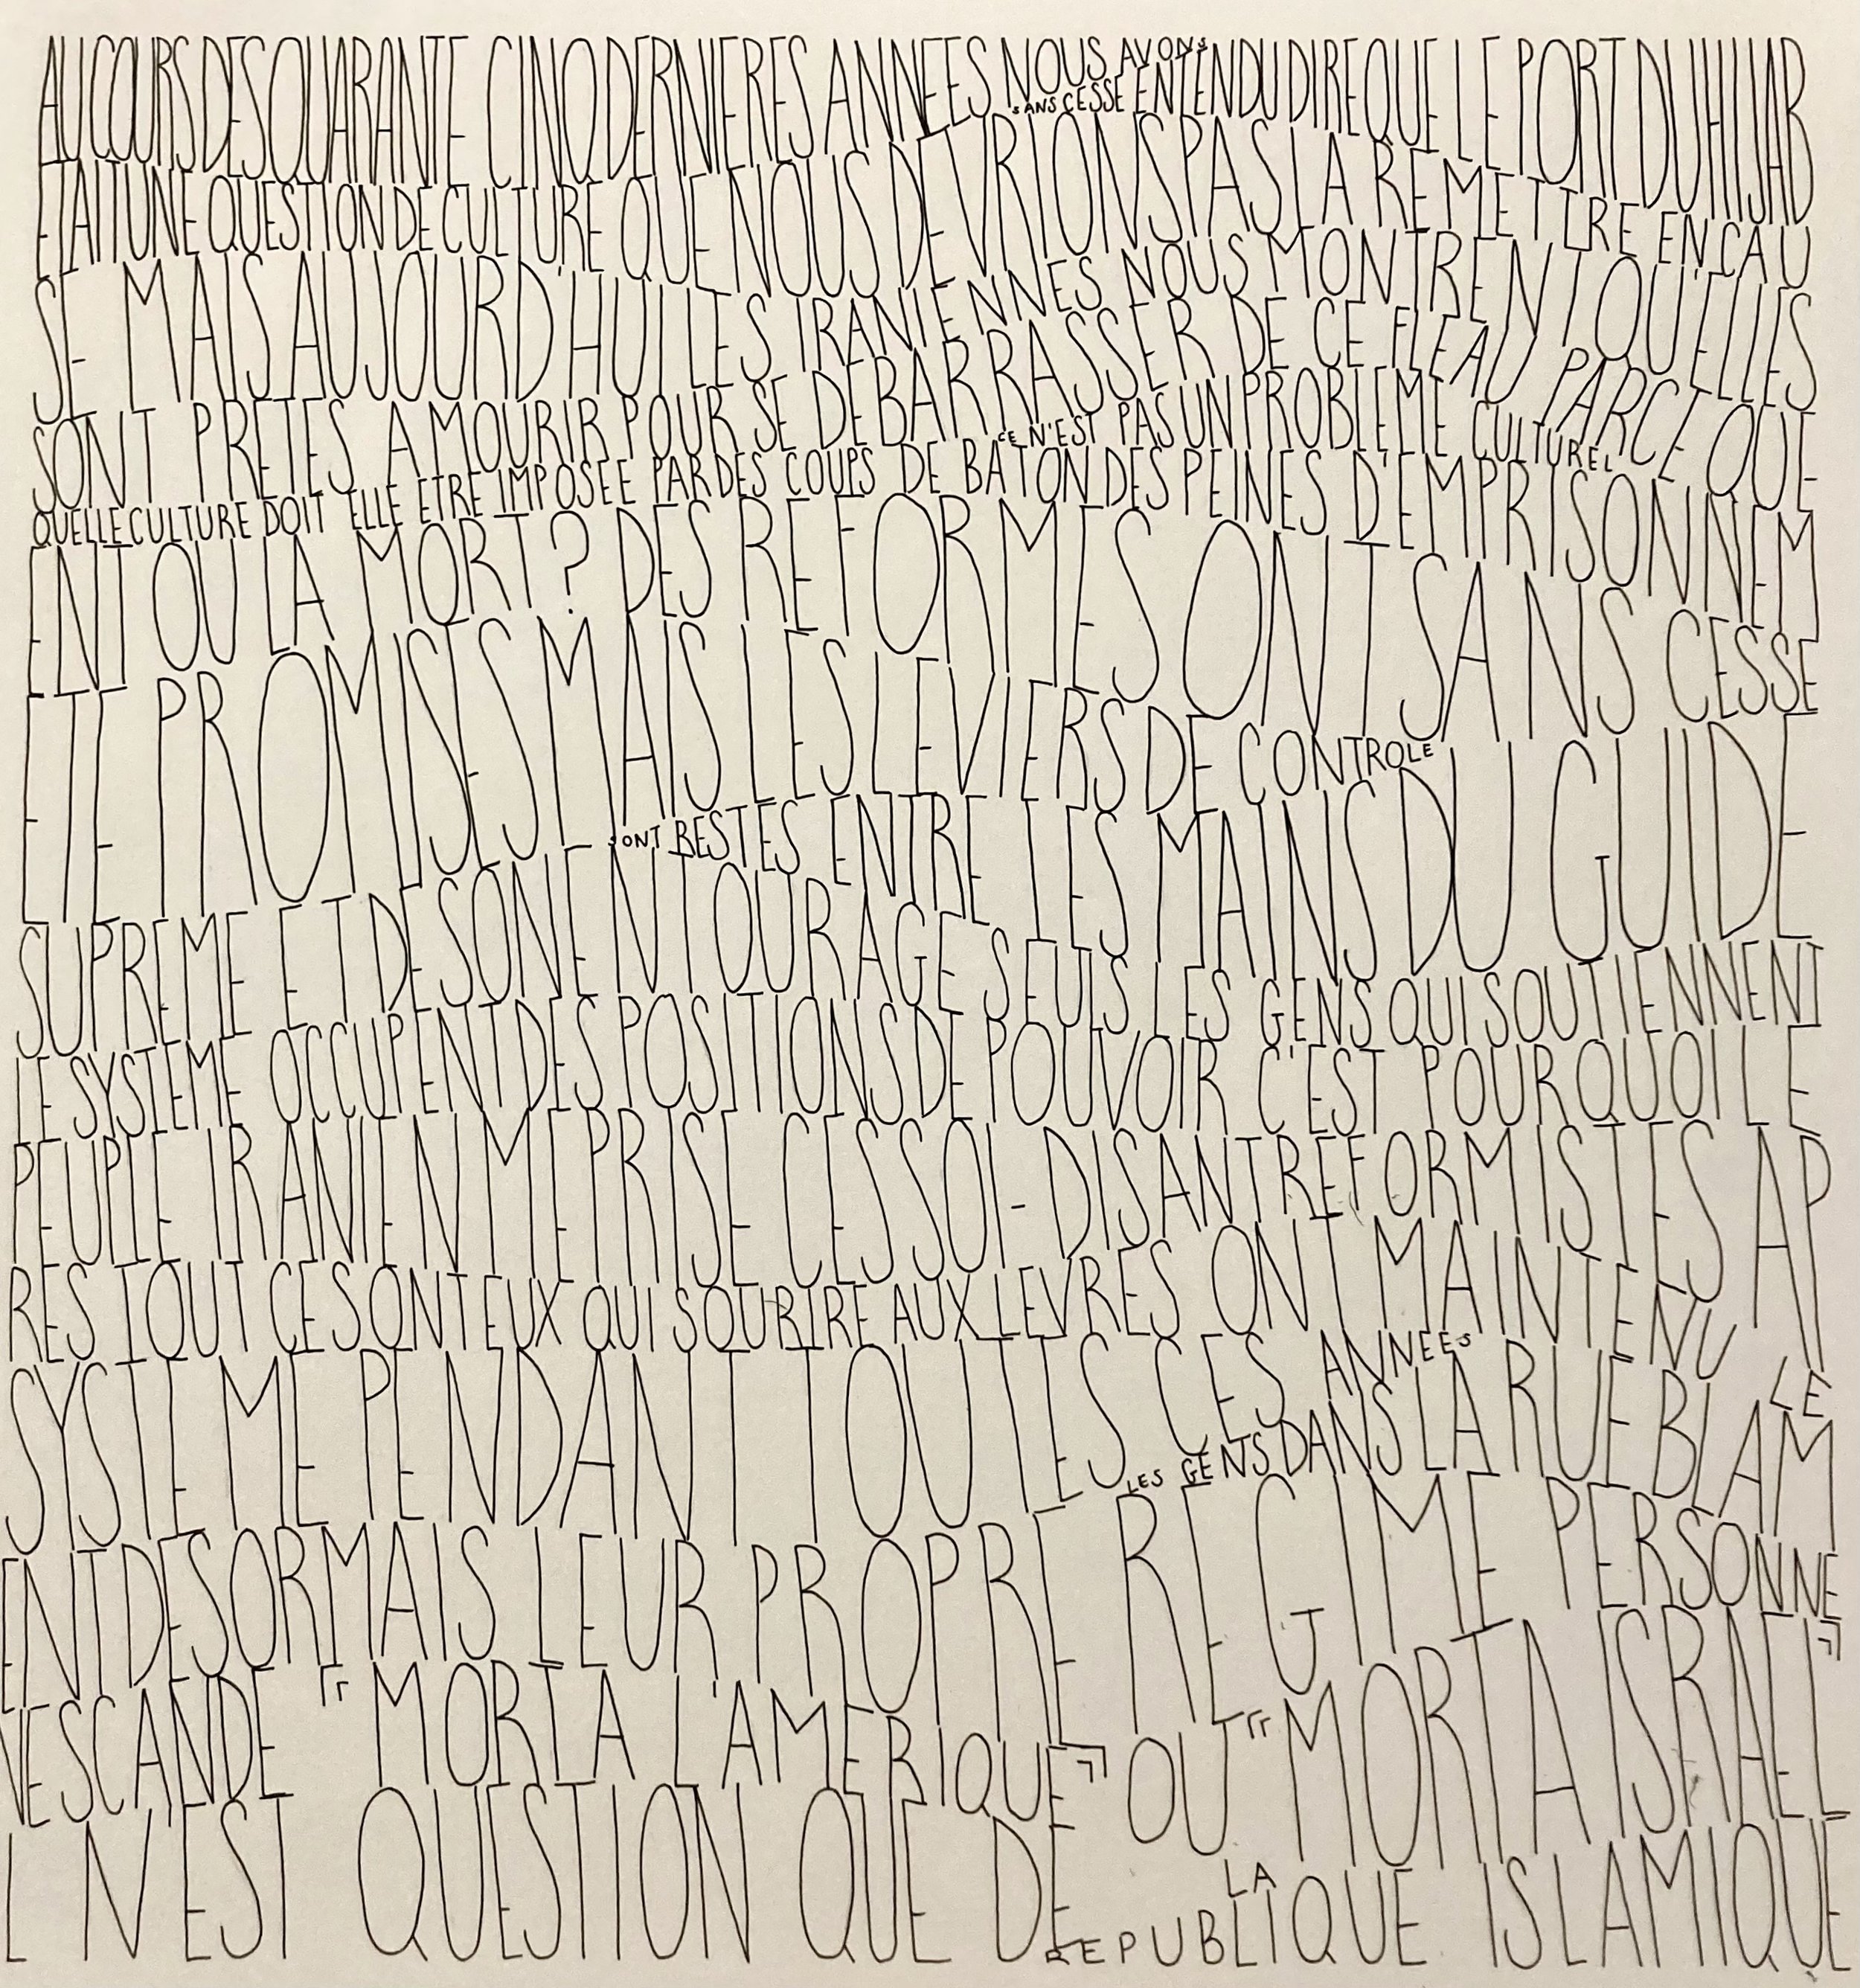 AU COURS DES QUARANTE CINQ DERNIERES ANNEES NOUS AVONS SANS CESSE ENTENDU DIRE QUE LE PORT DU HIJAB
ETAIT UNE QUESTION DE CULTURE QUE NOUS DEVRIONS PAS LA REMETTRE EN CAU
SE MAIS AUJOURD'HUI LES IRANIENNES NOUS MONTRENT QU'ELLES
SONT PRETES A MOURIR POUR SE DEBARRASSER DE CE FLEAU PARCE QUE
CE N'EST PAS UN PROBLEME CULTUREL
QUELLE CULTURE DOIT ELLE ETRE IMPOSEE PAR DES COUPS DE BATON DES PEINES D'EMPRISONNEM
ENT OU LA MORT ? DES REFORMES ONT SANS CESSE
ETE PROMISES MAIS LES LEVIERS DE CONTROLE
SONT RESTES ENTRE LES MAINS DU GUIDE
SUPREME ET DE SON ENTOURAGE SEULS LES GENS QUI SOUTIENNENT
LE SYSTEME OCCUPENT DES POSITIONS DE POUVOIR C'EST POURQUOI LE
PEUPLE IRANIEN MEPRISE CES SOI-DISANT REFORMISTES AP
RES TOUT CE SONT EUX QUI SOURIRE AUX LEVRES ONT MAINTENU LE
SYSTEME PENDANT TOUTES CES ANNEES
LES GENS DANS LA RUE BLAM
ENT DESORMAIS LEUR PROPRE REGIME PERSONNE
NE SCANDE "MORT A L'AMERIQUE" OU "MORT A ISRAEL"
L N'EST QUESTION QUE DE LA REPUBLIQUE ISLAMIQUE